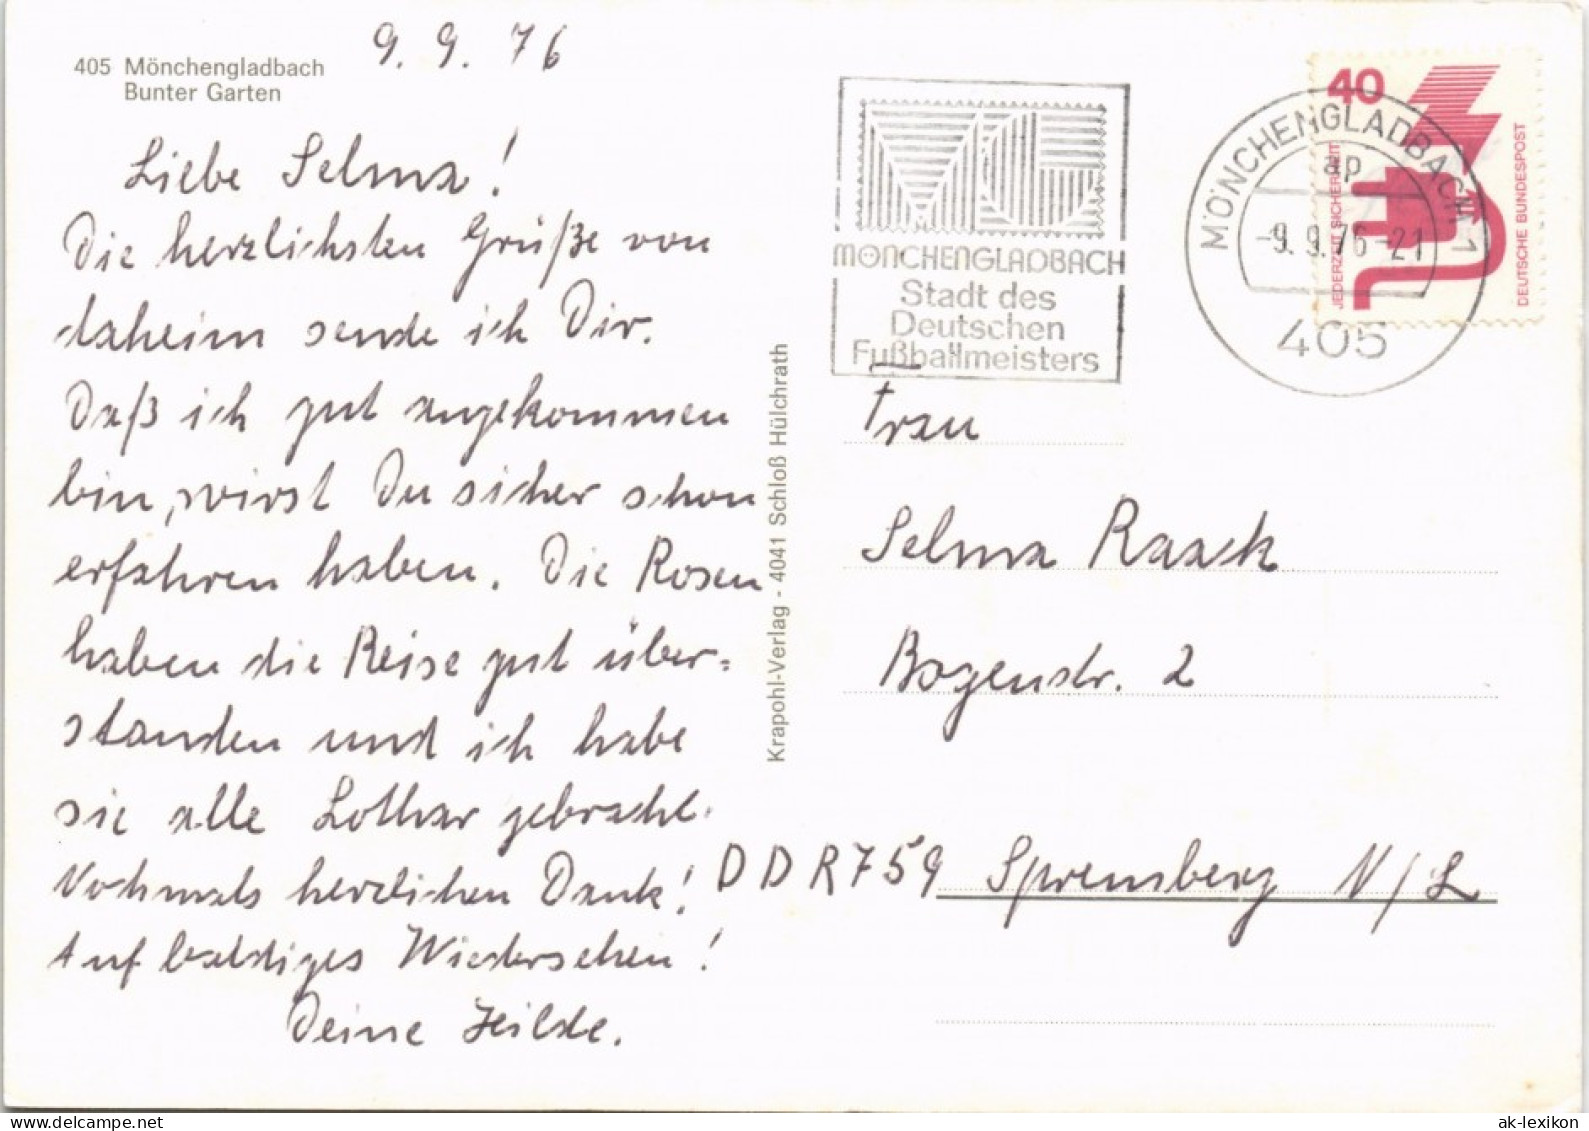 405 Mönchengladbach
Bunter Garten
9. 9. 76
Liebe Selma!
Die herzlichsten Grüße von
daheim sende ich Dir.
Daß ich gut angekommen
bin, wirst Du sicher schon
erfahren haben. Die Rosen
haben die Reise gut über=
standen und ich habe
sie alle Lothar gebracht.
Nochmals herzlichen Dank!
Auf baldiges Wiedersehen!
Deine Hilde.
Krapohl-Verlag - 4041 Schloß Hülchrath
MÖNCHENGLADBACH
Stadt des
Deutschen
Fußballmeisters
MÖNCHENGLADBACH 1
ap
-9. 9. 76-21
405
40
JEDERZEIT SICHERHEIT
DEUTSCHE BUNDESPOST
Frau
Selma Raack
Bogenstr. 2
DDR 759 Spremberg N/L
ak-lexikon.com